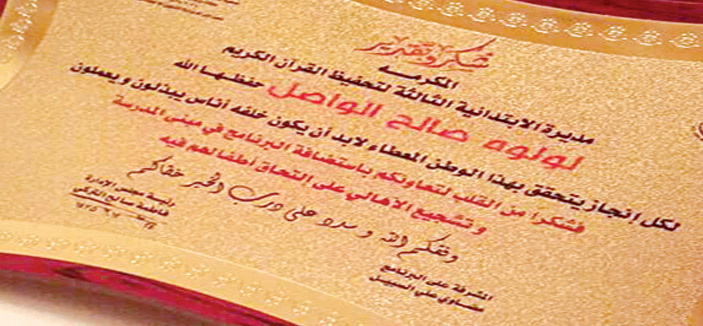 شكر وتقدير
المكرمة
مديرة الابتدائية الثالثة لتحفيظ القرآن الكريم
لولوه صالح الواصل حفظها الله
لكل إنجاز يتحقق بهذا الوطن المعطاء لابد أن يكون خلفه أناس يبذلون و يعملون
فشكرا من القلب لتعاونكم باستضافة البرنامج في مبنى المدرسة
و تشجيع الاهالي على التحاق أطفالهم فيه
وفقكم الله و سدد على درب الخير خطاكم
رئيسة مجلس الإدارة
فاطمة صالح التركي
المشرفة على البرنامج
علي السبيل